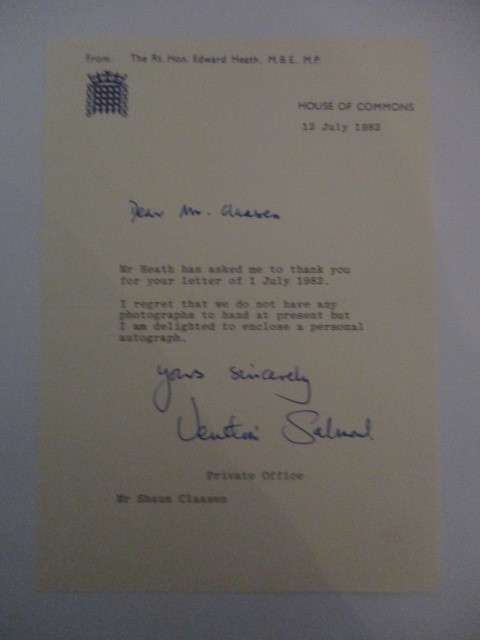 From: The Rt. Hon. Edward Heath, M.B.E. M.P.
HOUSE OF COMMONS
12 July 1982
Dear Mr. Claasen
Mr Heath has asked me to thank you
for your letter of 1 July 1982.
I regret that we do not have any
photographs to hand at present but
I am delighted to enclose a personal
autograph.
Yours sincerely
Private Office
Mr Shaun Claasen